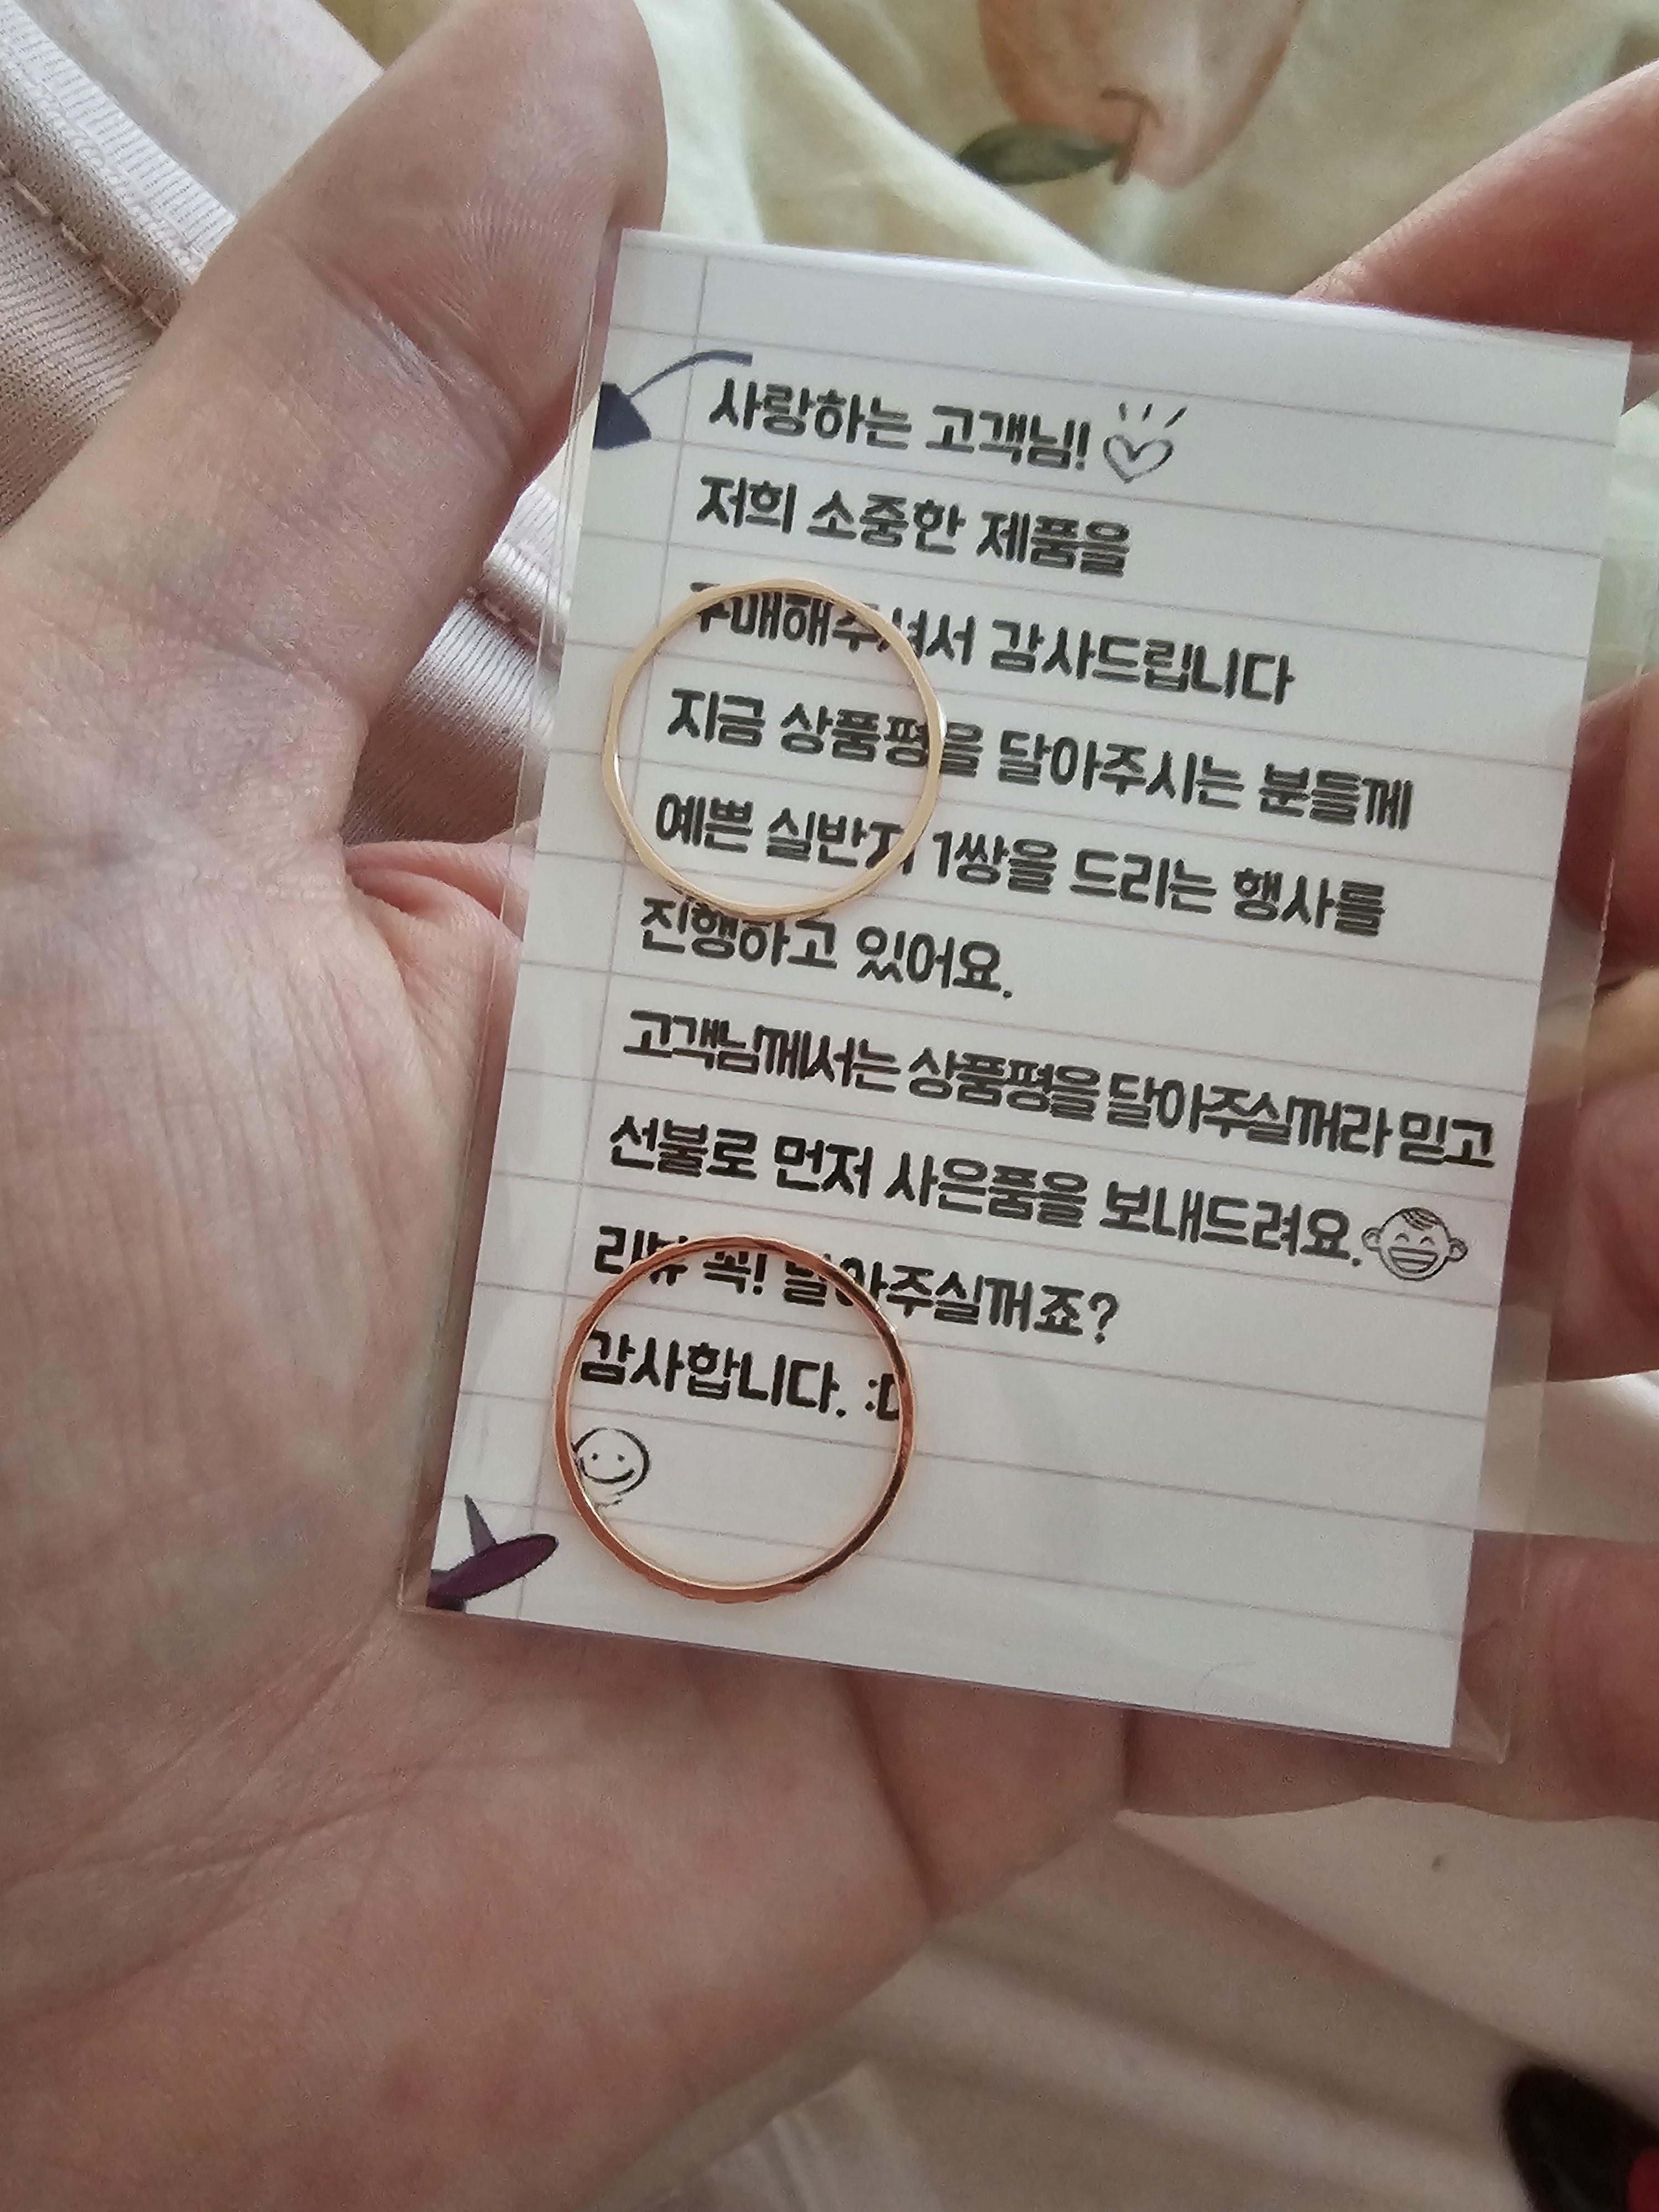 사랑하는 고객님!
저희 소중한 제품을
구매해주셔서 감사드립니다
지금 상품평을 달아주시는 분들께
예쁜 실반지 1쌍을 드리는 행사를
진행하고 있어요.
고객님께서는 상품평을 달아주실꺼라 믿고
선불로 먼저 사은품을 보내드려요.
리뷰 꼭! 달아주실꺼죠?
감사합니다. :D